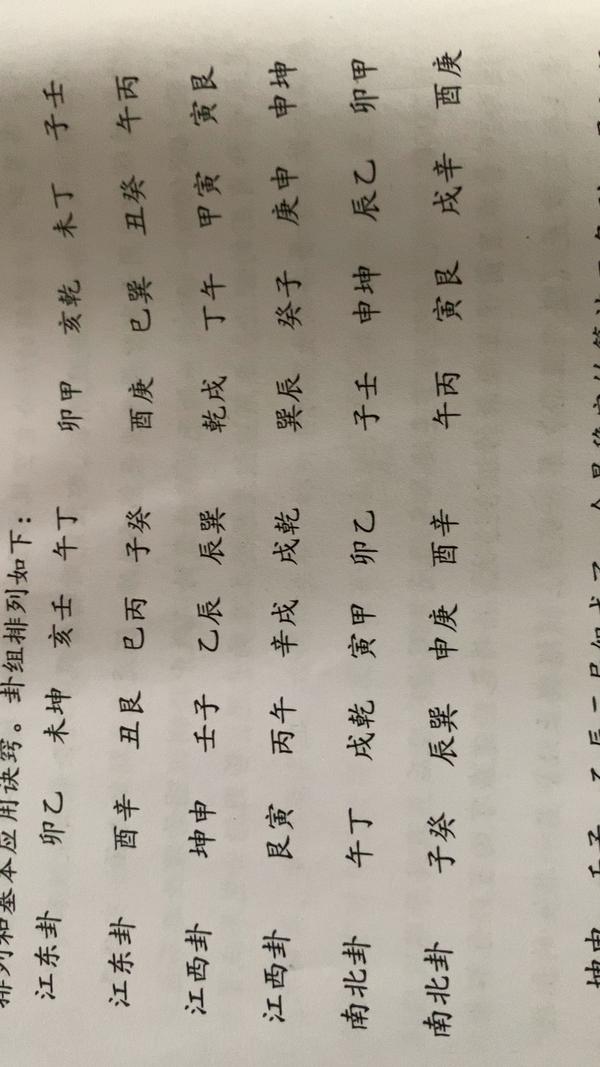 排列和基本应用诀窍。卦组排列如下：
江东卦 卯乙 未坤 亥壬 午丁 卯甲 亥乾 未丁 子壬
江东卦 酉辛 丑艮 巳丙 子癸 酉庚 巳巽 丑癸 午丙
江西卦 坤申 壬子 乙辰 辰巽 乾戌 丁午 甲寅 寅艮
江西卦 艮寅 丙午 辛戌 戌乾 巽辰 癸子 庚申 申坤
南北卦 午丁 戌乾 寅甲 卯乙 子壬 申坤 辰乙 卯甲
南北卦 子癸 辰巽 申庚 酉辛 午丙 寅艮 戌辛 酉庚